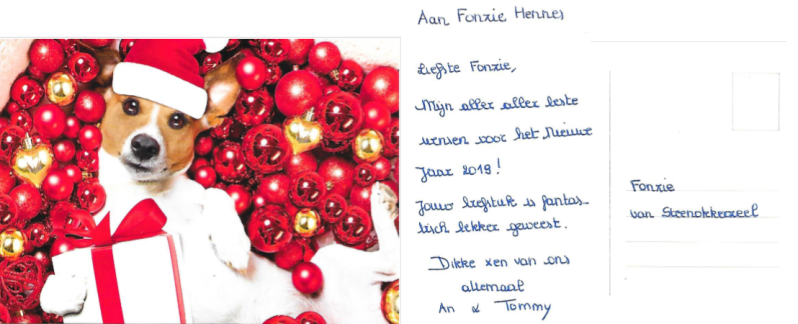 Aan Fonzie Hennes
Liefste Fonzie,
Mijn aller aller beste
wensen voor het nieuwe
Jaar 2019!
Jouw biefstuk is fantas-
tisch lekker geweest.
Dikke xen van ons
allemaal
An & Tommy
Fonzie
van Steenokkerzeel